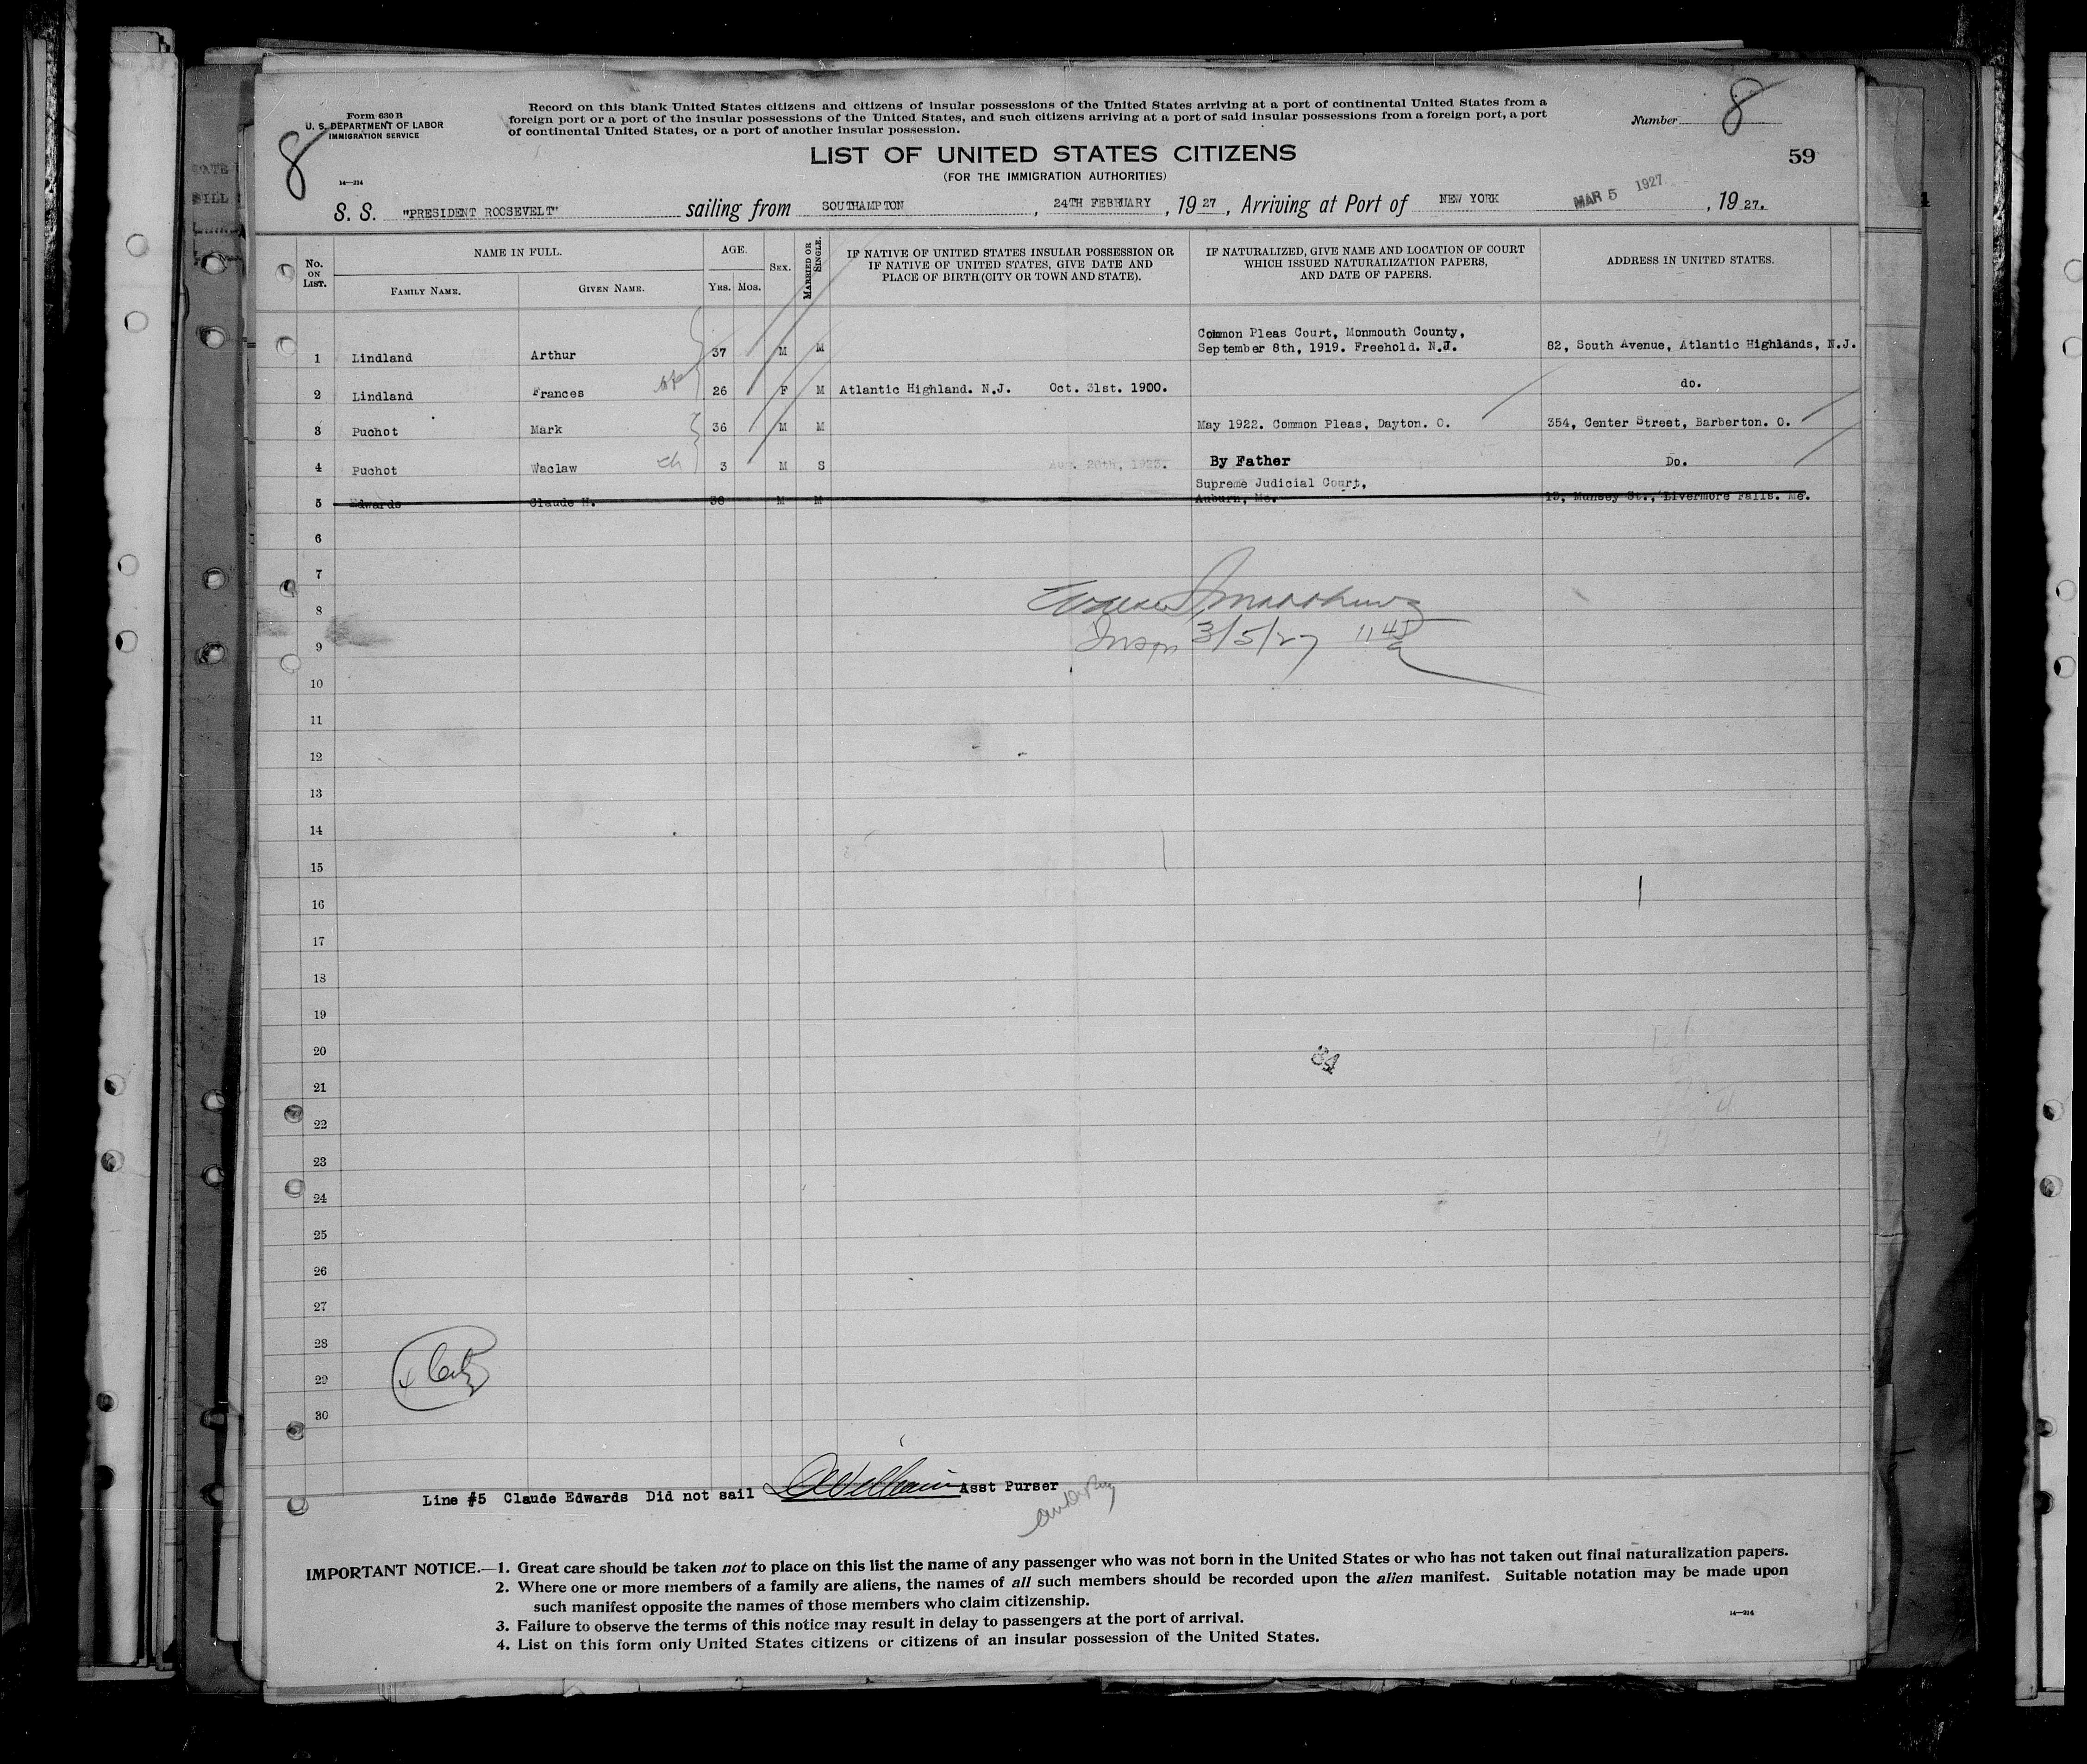 Form 630 B
U. S. DEPARTMENT OF LABOR
IMMIGRATION SERVICE
14—214
8
Record on this blank United States citizens and citizens of insular possessions of the United States arriving at a port of continental United States from a
foreign port or a port of the insular possessions of the United States, and such citizens arriving at a port of said insular possessions from a foreign port, a port
of continental United States, or a port of another insular possession.
Number 8
LIST OF UNITED STATES CITIZENS
(FOR THE IMMIGRATION AUTHORITIES)
59
S. S. "PRESIDENT ROOSEVELT" sailing from SOUTHAMPTON, 24TH FEBRUARY, 1927, Arriving at Port of NEW YORK MAR 5 1927, 1927.
No. ON LIST. NAME IN FULL. AGE. SEX. MARRIED OR SINGLE. IF NATIVE OF UNITED STATES INSULAR POSSESSION OR IF NATIVE OF UNITED STATES, GIVE DATE AND PLACE OF BIRTH (CITY OR TOWN AND STATE). IF NATURALIZED, GIVE NAME AND LOCATION OF COURT WHICH ISSUED NATURALIZATION PAPERS, AND DATE OF PAPERS. ADDRESS IN UNITED STATES.
FAMILY NAME. GIVEN NAME. YRS. MOS.
1 Lindland Arthur 37 M M Common Pleas Court, Monmouth County, September 8th, 1919. Freehold. N.J. 82, South Avenue, Atlantic Highlands, N.J.
2 Lindland Frances 26 F M Atlantic Highland. N.J. Oct. 31st. 1900. do.
3 Puchot Mark 36 M M May 1922. Common Pleas, Dayton. O. 354, Center Street, Barberton. O.
4 Puchot Waclaw ch 3 M S Aug. 26th, 1923. By Father Do.
5 Edwards Claude H. 38 M M Supreme Judicial Court, Auburn, Me. 13, Munsey St., Livermore Falls. Me.
6
7
8
9
Insp 3/5/27 1145
10
11
12
13
14
15
16
17
18
19
20
21
22
23
24
25
26
27
28
29
30
Line #5 Claude Edwards Did not sail Asst Purser
IMPORTANT NOTICE.—1. Great care should be taken not to place on this list the name of any passenger who was not born in the United States or who has not taken out final naturalization papers.
2. Where one or more members of a family are aliens, the names of all such members should be recorded upon the alien manifest. Suitable notation may be made upon
such manifest opposite the names of those members who claim citizenship.
3. Failure to observe the terms of this notice may result in delay to passengers at the port of arrival.
4. List on this form only United States citizens or citizens of an insular possession of the United States.
14—214